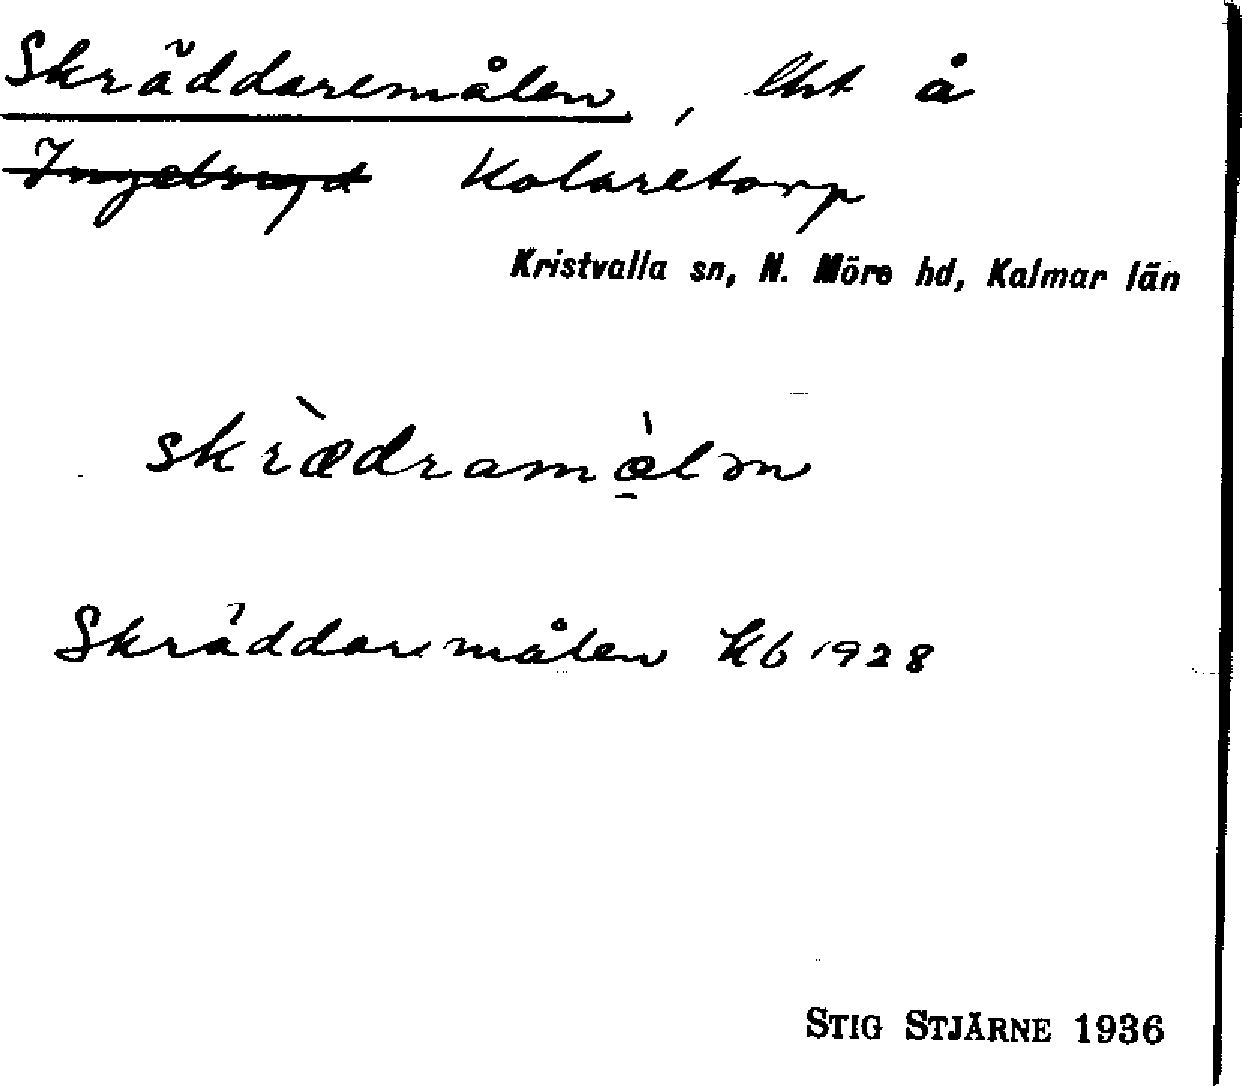 Skräddaremålen, lht å
Ingelsryd Kolaretorp
Kristvalla sn, N. Möre hd, Kalmar län
skrædramålm
Skräddaremålen Kb 1928
STIG STJÄRNE 1936